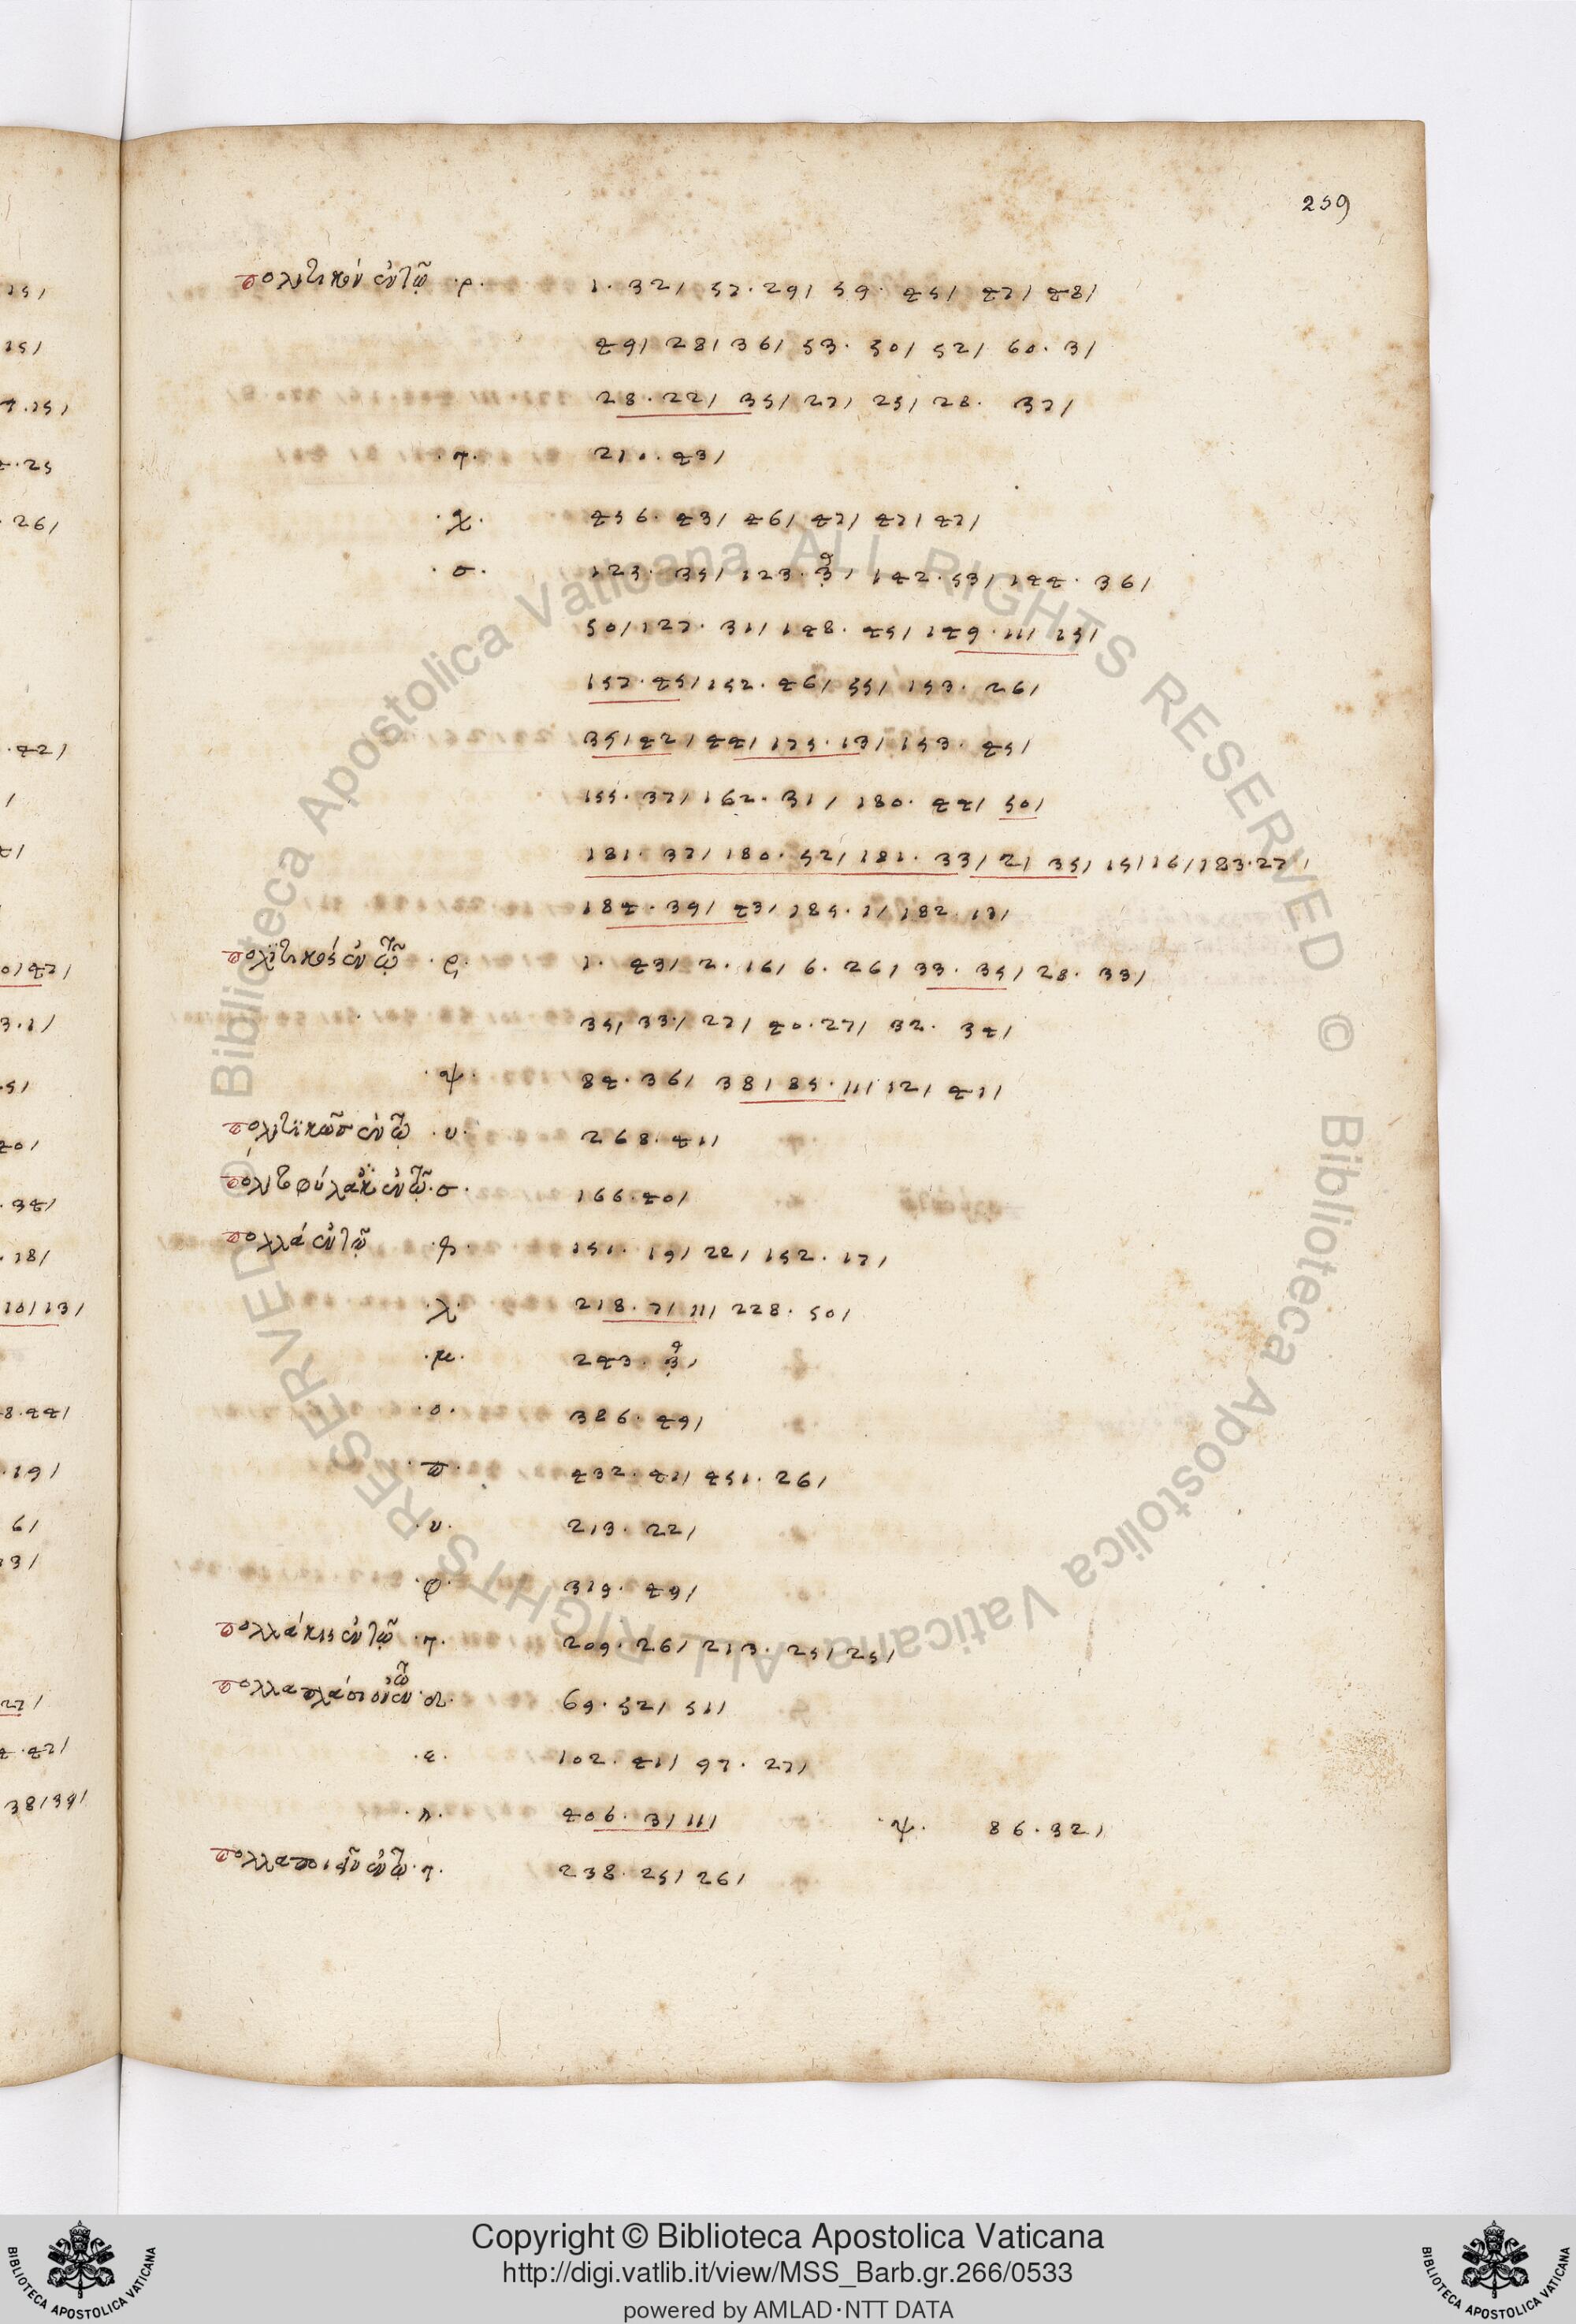 259
πολιτικόν ἐν τῷ ·ρ· 1· 32/ 57· 29/ 59· 45/ 47/ 48/
49/ 28/ 36/ 53· 50/ 52/ 60· 3/
28· 22/ 35/ 27/ 25/ 28· 37/
·τ· 210· 43/
·χ· 456· 43/ 46/ 47/ 47/ 47/
·σ· 123· 35/ 123· 3/ 142· 53/ 144· 36/
50/ 127· 31/ 148· 45/ 149· 11/ 15/
157· 45/ 152· 46/ 55/ 153· 26/
35/ 42/ 44/ 175· 13/ 153· 45/
155· 37/ 162· 31/ 180· 44/ 50/
181· 37/ 180· 52/ 181· 33/ 2/ 35/ 15/ 16/ 183· 27/
184· 39/ 43/ 185· 1/ 182· 17/
πολιτικός ἐν τῷ ·ρ· 1· 43/ 2· 16/ 6· 26/ 33· 35/ 28· 33/
35/ 33/ 27/ 40· 27/ 32· 34/
·ψ· 84· 36/ 38/ 85· 11/ 12/ 41/
πολιτικῶσ ἐν τῷ ·υ· 268· 41/
ἐν τῷ ·σ· 166· 40/
πολλά ἐν τῷ 151· 19/ 22/ 152· 17/
·λ· 218· 7/ 11/ 228· 50/
·μ· 243· 3/
·ο· 386· 49/
·π· 432· 41/ 451· 26/
·υ· 213· 22/
·φ· 319· 49/
πολλάκις ἐν τῷ ·τ· 209· 26/ 213· 25/ 25/
πολλαπλάσιον ἐν τῷ 69· 52/ 51/
·ε· 102· 41/ 97· 27/
406· 3/ 11/ ·ψ· 86· 32/
ἐν τῷ ·τ· 238· 25/ 26/
© Biblioteca Apostolica Vaticana ALL RIGHTS RESERVED © Biblioteca Apostolica Vaticana ALL RIGHTS RESERVED
Copyright © Biblioteca Apostolica Vaticana
http://digi.vatlib.it/view/MSS_Barb.gr.266/0533
powered by AMLAD·NTT DATA
BIBLIOTECA APOSTOLICA VATICANA
BIBLIOTECA APOSTOLICA VATICANA